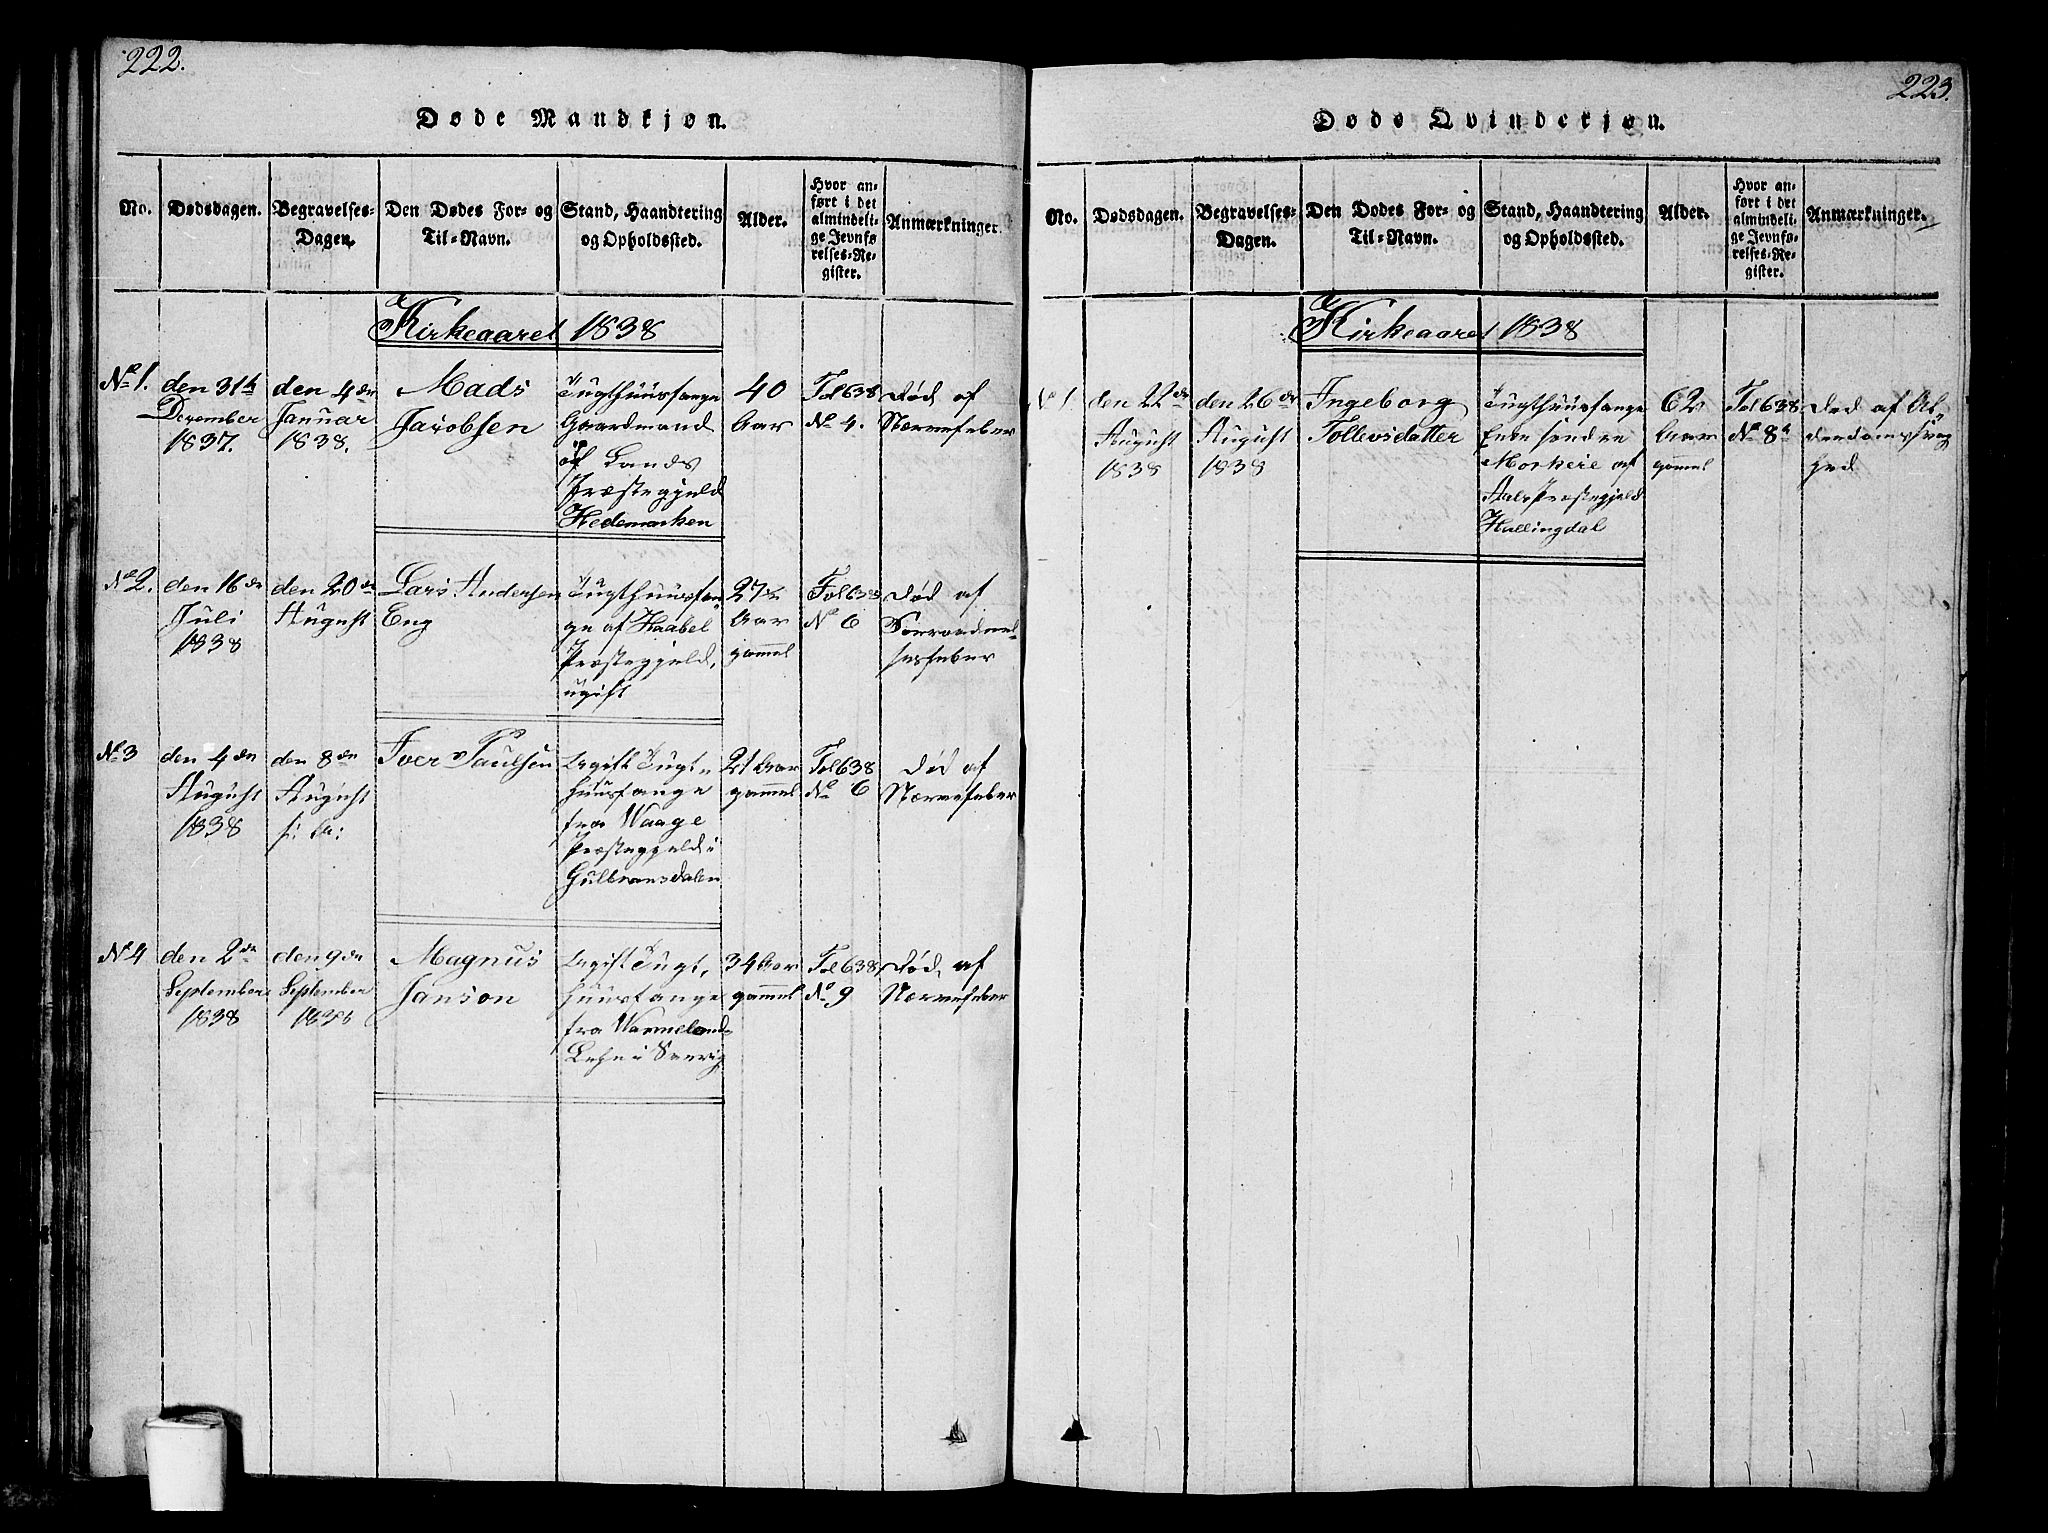 222.
Døde Mandkjøn.
No.
Dødsdagen.
Begravelses-
Dagen.
Den Dødes For- og
Til-Navn.
Stand, Haandtering
og Opholdssted.
Alder.
Hvor an-
ført i det
almindeli-
ge Jevnfø
relses-Re-
gister.
Anmærkninger.
Kirkeaaret 1838
No 1.
den 31te
December
1837.
den 4de
Januar
1838.
Mads
Jacobsen
Tugthuusfange
Gaardmand
af Lands
Præstegjeld
Hedemarken
40
Aar
Fol 638
No 4.
Død af
Nervefeber
No 2.
den 16de
Juli
1838
den 20de
August
Lars Andersen
Eng
Tugthuusfan-
ge af Haabel
Præstegjeld,
ugift
27
Aar
gammel
Fol 638
No 6
Død af
Forraadnel-
sesfeber
No 3
den 4de
August
1838
den 8de
August
s: A:
Iver Paulsen
Ugift Tugt-
huusfange
fra Waage
Præstegjeld i
Gulbransdalen
21 Aar
gammel
Fol 638
No 6
Død af
Nervefeber
No 4
den 2de
September
1838
den 9de
September
1838
Magnus
Janson
Ugift Tugt,
huusfange
fra Wermeland-
Lehn i Sverig
34 Aar
gammel
Fol 638
No 9
Død af
Nervefeber
223.
Døde Qvindekjøn.
No.
Dødsdagen.
Begravelses-
Dagen.
Den Dødes For- og
Til-Navn.
Stand, Haandtering
og Opholdssted.
Alder.
Hvor an-
ført i det
almindeli-
ge Jevnfø-
relses-Re-
gister.
Anmærkninger.
Kirkeaaret 1838
No 1
den 22de
August
1838
den 26de
August
1838
Ingeborg
Tollevsdatter
Tugthuusfange
Enke søndre
Morkeie af
Aals Præstegjeld
Hallingdal
62
Aar
gammel
Fol 638
No 8
Død af Al-
derdomssvag
hed